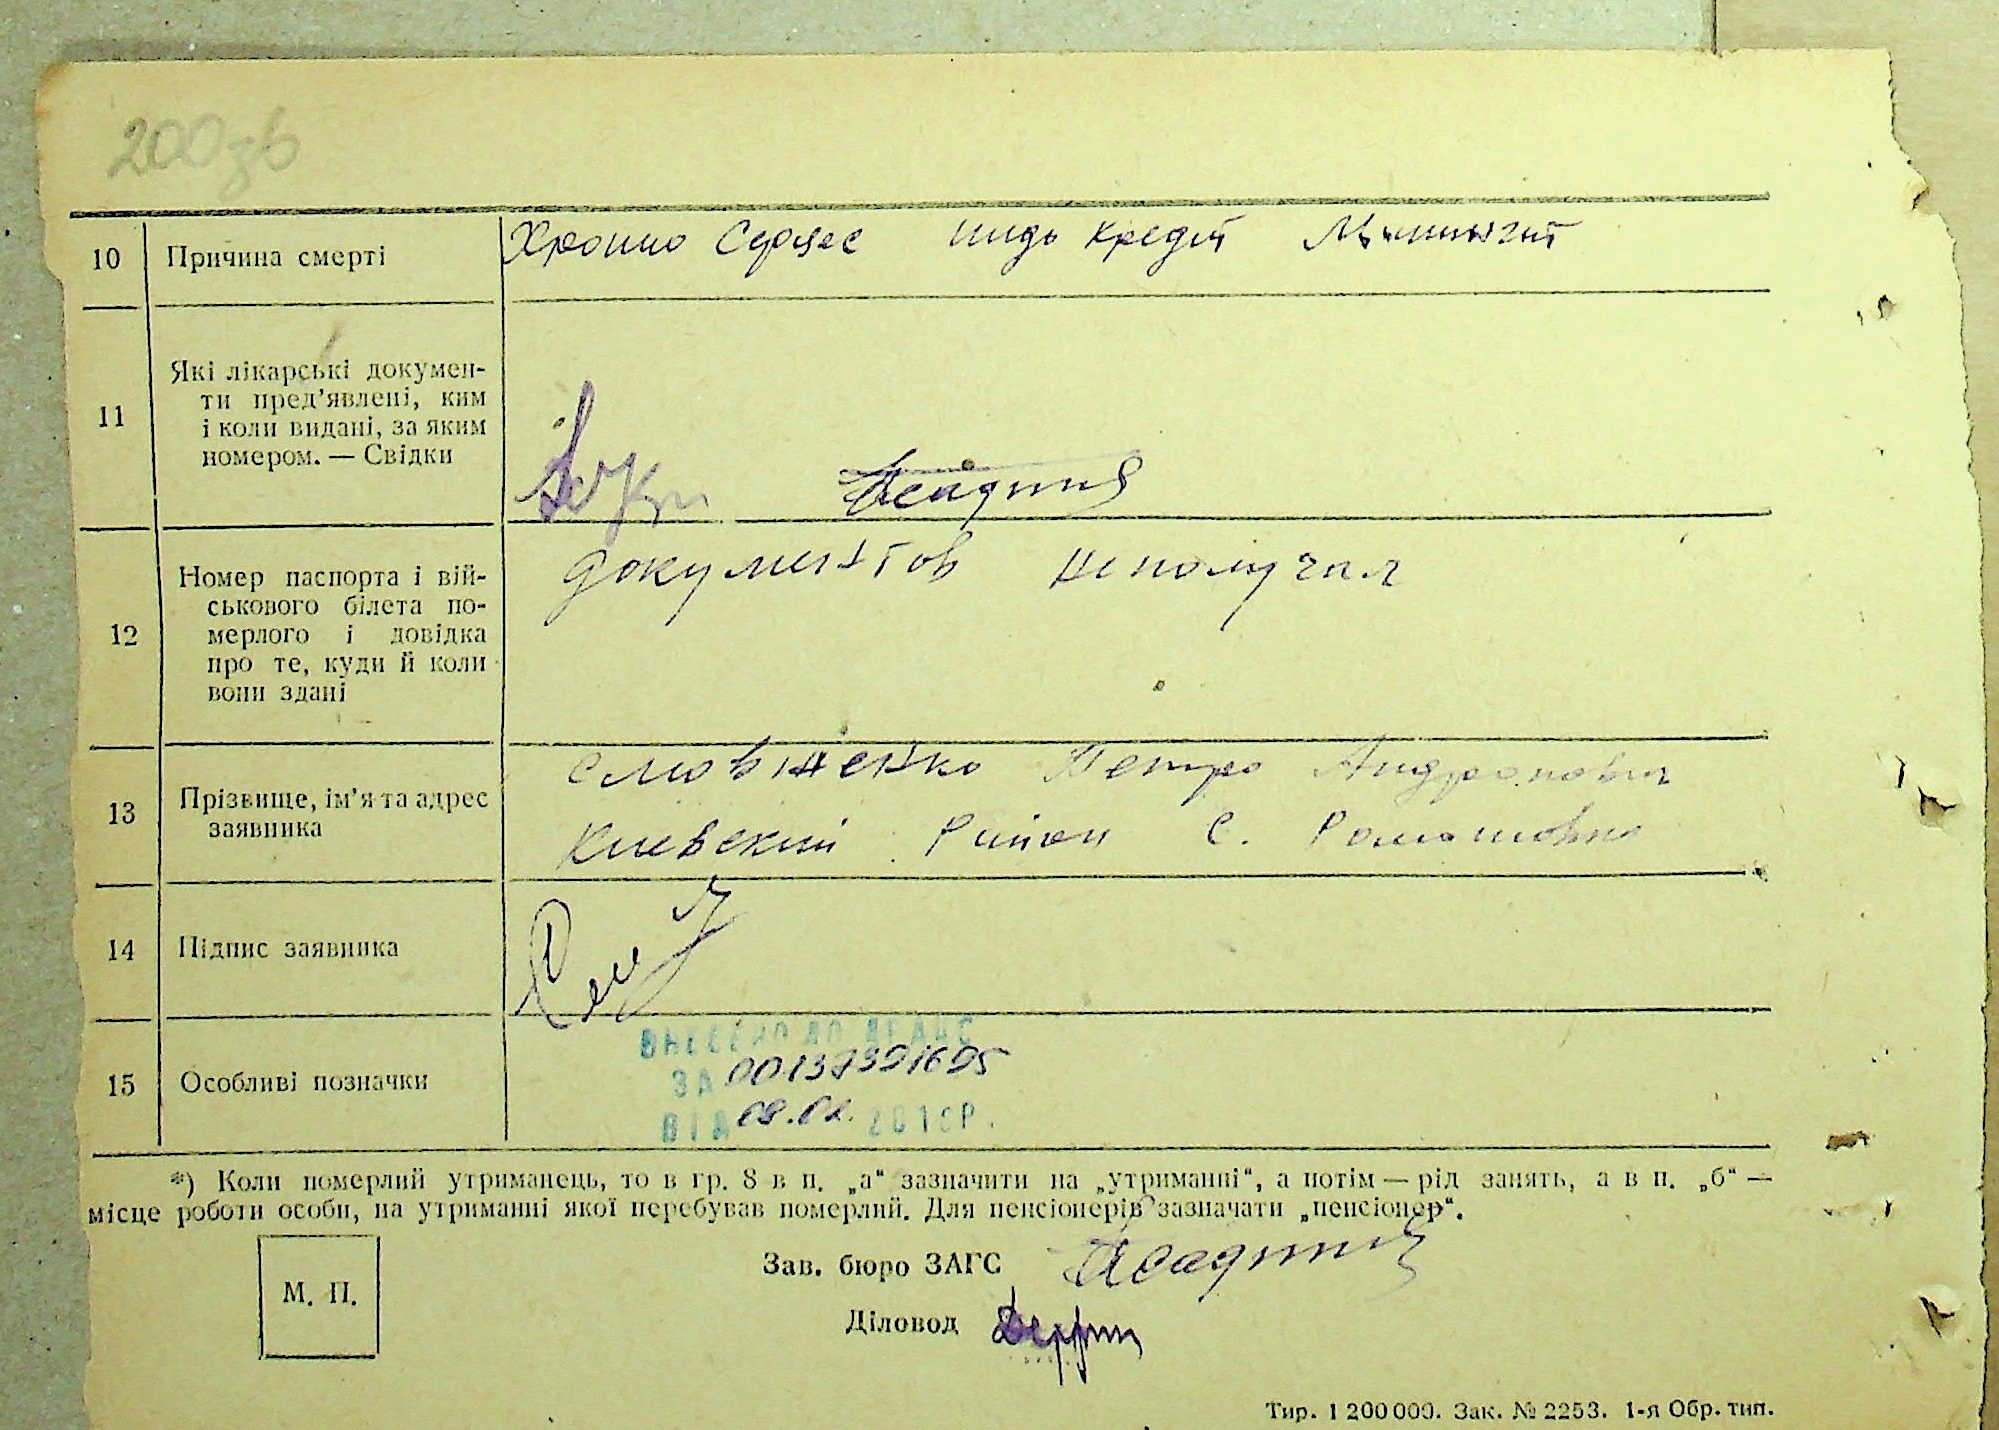 200зв
10 Причина смерті
11 Які лікарські докумен-
ти пред’явлені, ким
і коли видані, за яким
номером. — Свідки
12 Номер паспорта і вій-
ськового білета по-
мерлого і довідка
про те, куди й коли
вони здані
документов неполучал
13 Прізвище, ім’я та адрес
заявника
Петро Андронович
Киевский Район С.
14 Підпис заявника
15 Особливі позначки
ВНЕСЕНО ДО ДРАЦС
ЗА 00137391695
ВІД
*) Коли померлий утриманець, то в гр. 8 в п. „а“ зазначити на „утриманні“, а потім — рід занять, а в п. „б“ —
місце роботи особи, на утриманні якої перебував померлий. Для пенсіонерів зазначати „пенсіонер“.
М. П.
Зав. бюро ЗАГС
Діловод
Тир. 1 200 000. Зак. № 2253. 1-я Обр. тип.